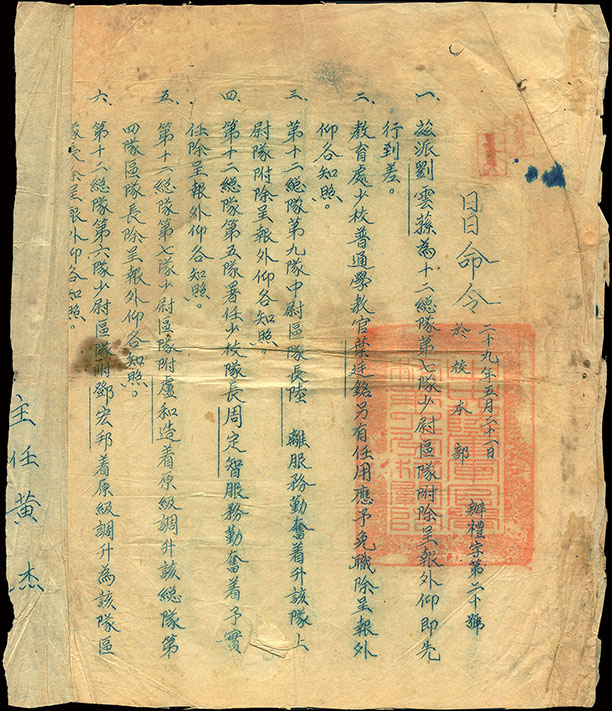 日日命令
二十九年五月二十一日
於校本部
辦禮字第二十號
一、茲派劉雲蓀為十二總隊第七隊少尉區隊附除呈報外仰即先
行到差。
二、教育處少校普通學教官葉廷銘另有任用應予免職除呈報外
仰各知照。
三、第十二總隊第九隊中尉區隊長陸 離服務勤奮着升該隊上
尉隊附除呈報外仰各知照。
四、第十二總隊第五隊署任少校隊長周定智服務勤奮着予實
任除呈報外仰各知照。
五、第十二總隊第七隊少尉區隊附盧和造着原級調升該總隊第
四隊區隊長除呈報外仰各知照。
六、第十二總隊第六隊少尉區隊附鄧宏邦着原級調升為該隊區
隊長除呈報外仰各知照。
主任黃 杰